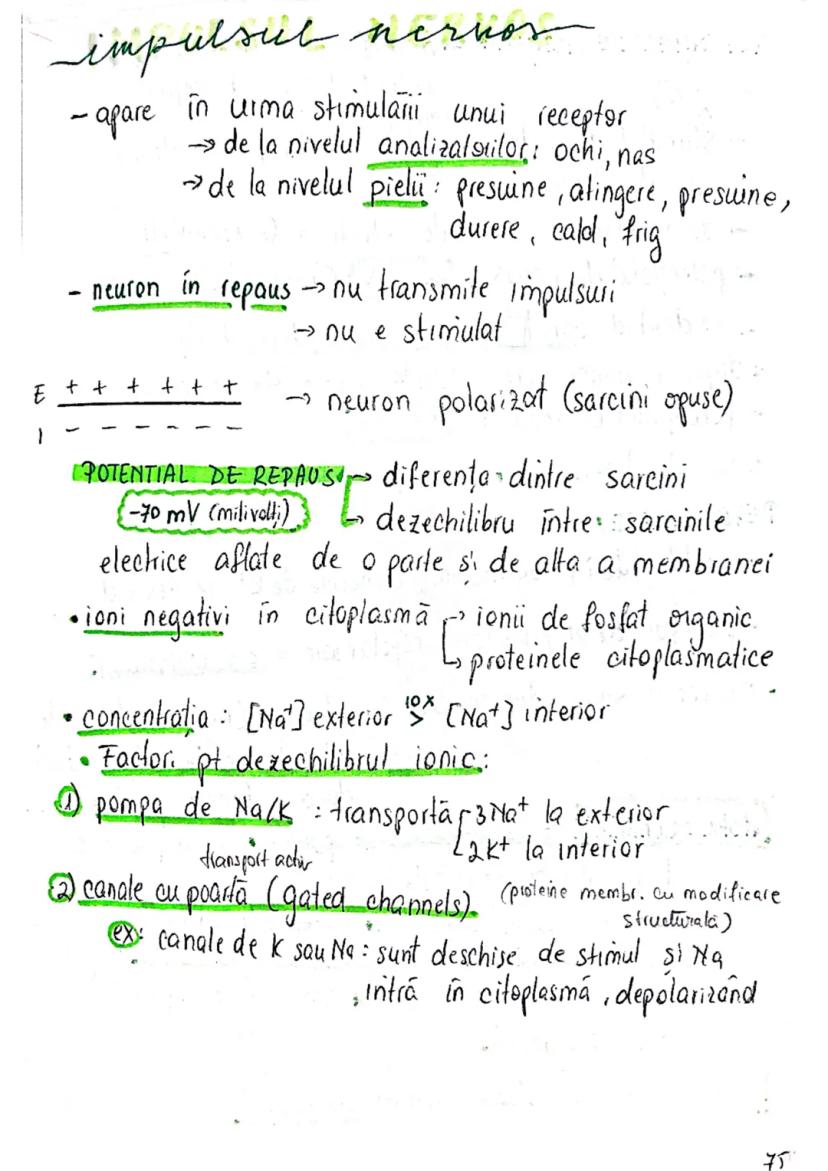 impulsul nervos
- apare în urma stimulării unui receptor
→ de la nivelul analizatorilor: ochi, nas
→ de la nivelul pielii: presiune, atingere, presiune,
durere, cald, frig
- neuron în repaus → nu transmite impulsuri
→ nu e stimulat
E + + + + + + → neuron polarizat (sarcini opuse)
I - - - - - -
POTENTIAL DE REPAUS → diferența dintre sarcini
-70 mV (milivolți) ↳ dezechilibru între sarcinile
electrice aflate de o parte și de alta a membranei
• ioni negativi în citoplasmă → ionii de fosfat organic
↳ proteinele citoplasmatice
• concentrația: [Na⁺] exterior 10x > [Na⁺] interior
• Factori pt dezechilibrul ionic:
1) pompa de Na/K : transportă 3Na⁺ la exterior
2K⁺ la interior
transport activ
2) canale cu poartă (gated channels). (proteine membr. cu modificare
structurală)
ex: canale de K sau Na: sunt deschise de stimul și Na
intră în citoplasmă, depolarizând
75